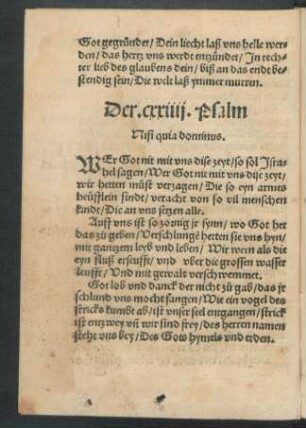 Got gegründet/ Dein liecht laß vns helle wer-
den/ das hertz vns werdt entzündet/ In rech-
ter lieb des glaubens dein/ biß an das endt be-
stendig sein/ Die welt laß ymmer murren.
Der. cxxiiij. Psalm
Nisi quia dominus.
WEr Got nit mit vns dise zeyt/ so sol Isra-
hel sagen/ Wer Got nit mit vns dise zeyt/
wir hetten müst verzagen/ Die so eyn armes
heüfflein sindt/ veracht von so vil menschen
kindt/ Die an vns setzen alle.
Auff vns ist so zornig jr synn/ wo Got het
das zů geben/ Verschlungē hetten sie vns hyn/
mit gantzem leyb vnd leben/ Wir wern als die
eyn fluß erseufft/ vnd vber die grossen wasser
leufft/ Vnd mit gewalt verschwemmet.
Got lob vnd danck der nicht zů gab/ das jr
schlund vns mocht fangen/ Wie ein vogel des
stricks kumbt ab/ ist vnser seel entgangen/ strick
ist entzwey vñ wir sind frey/ des herren namen
stehe vns bey/ Des Gots hymels vnd erden.